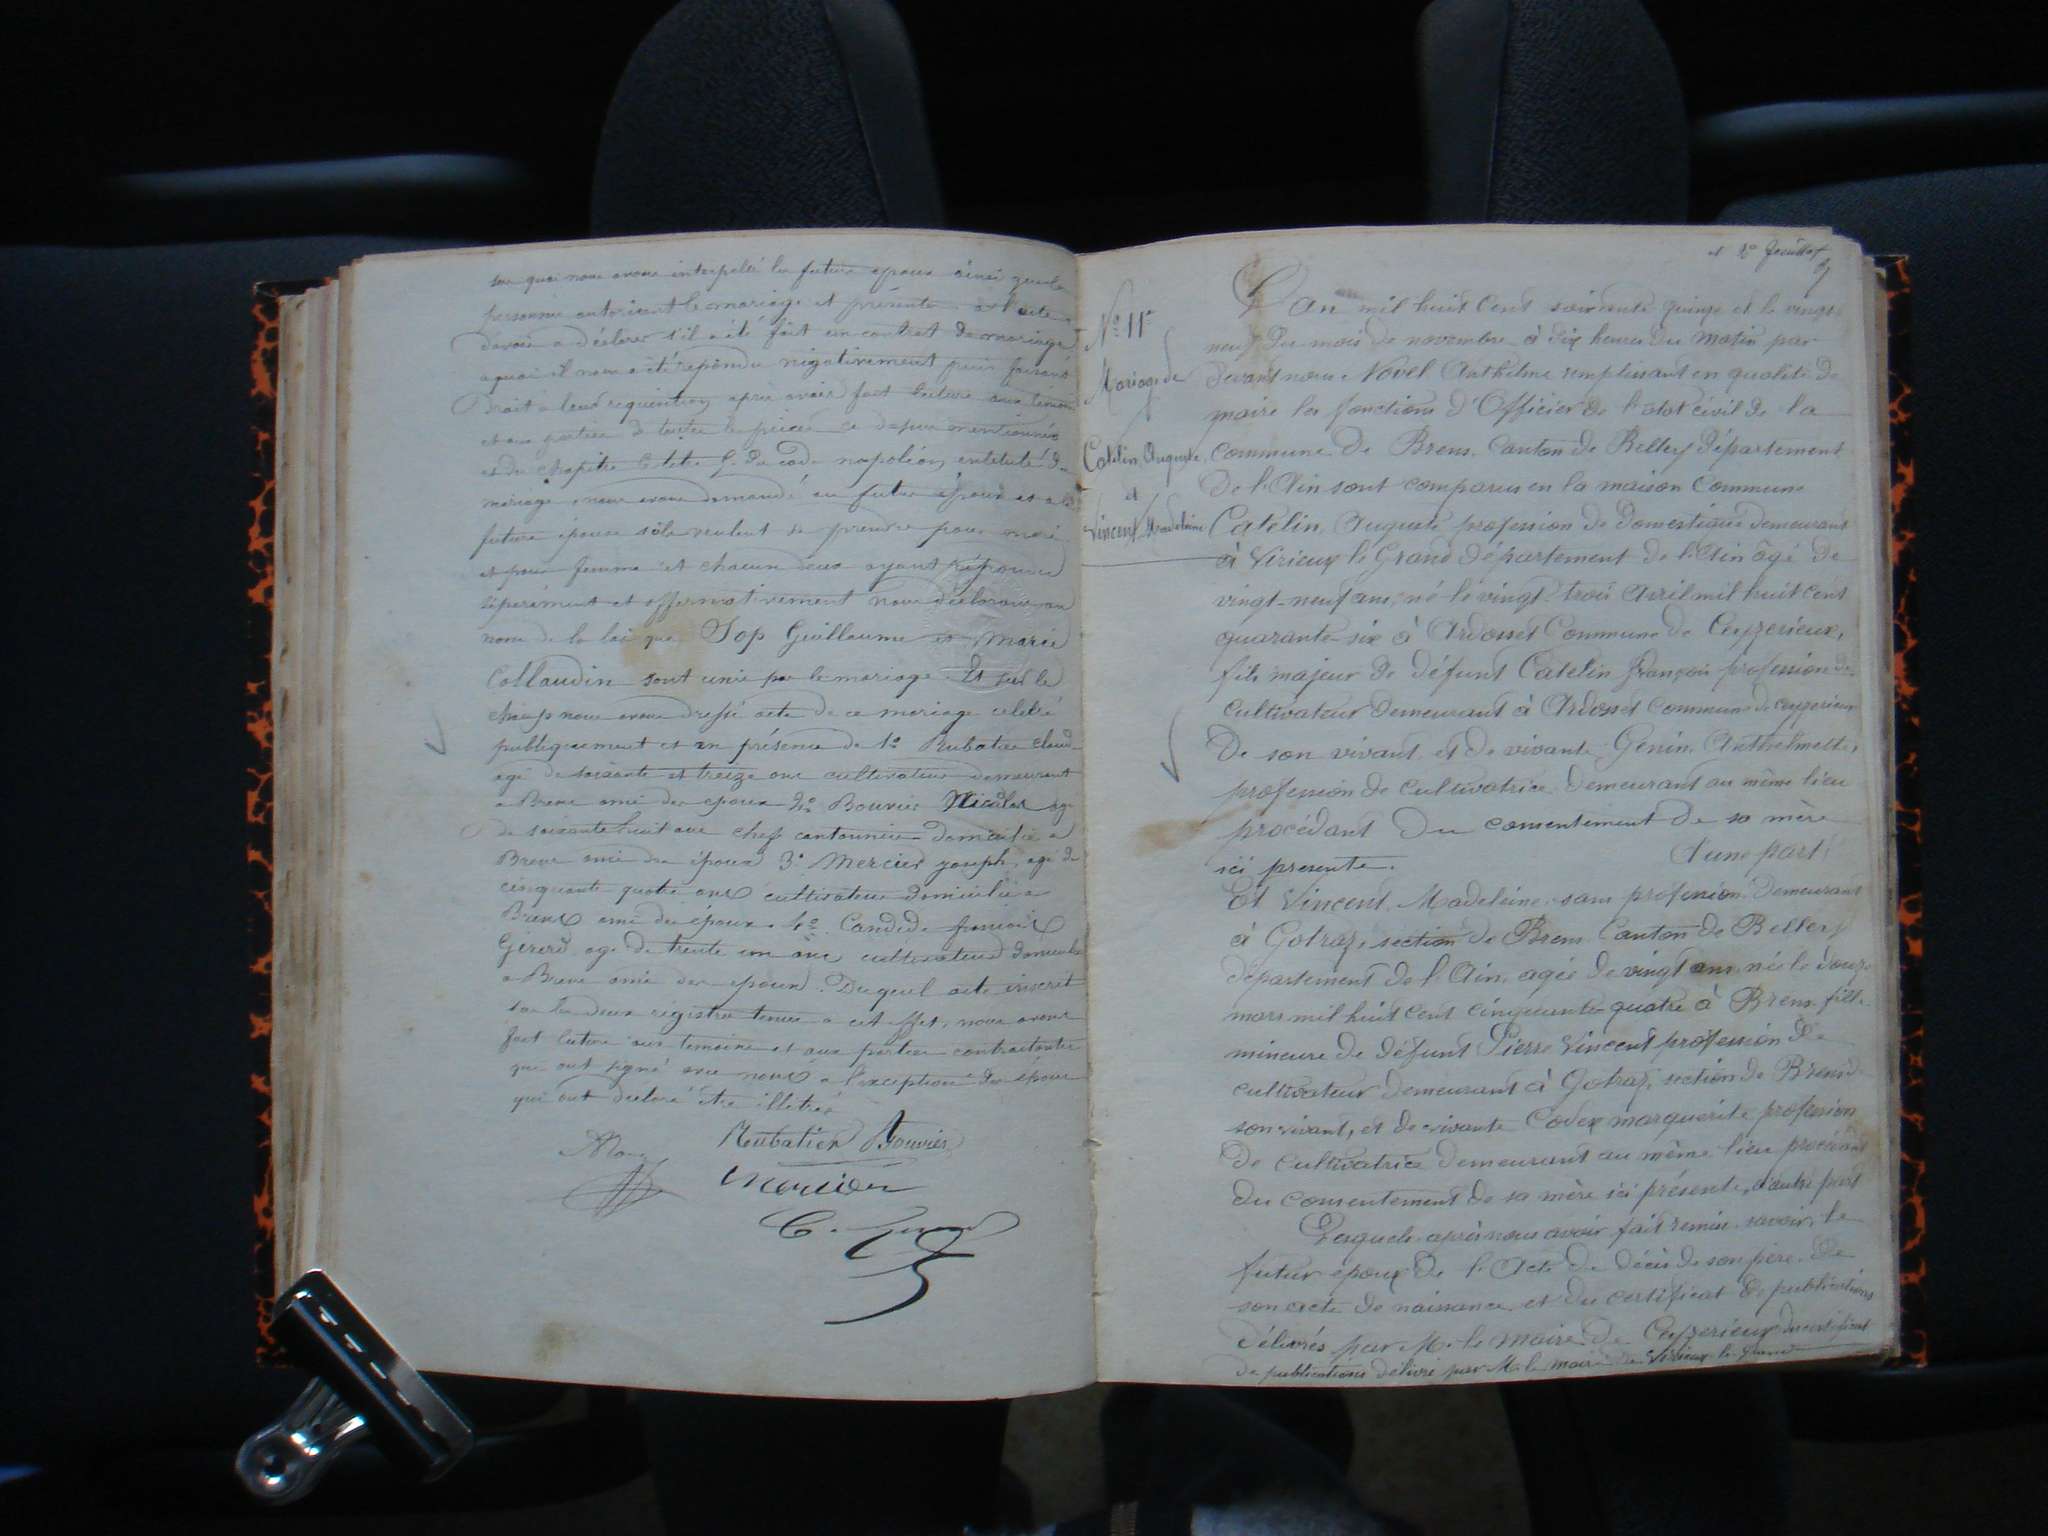 sur quoi nous avons interpellé les futurs epoux ainsi que les
personnes autorisant le mariage et présentes à l'acte
davoir a déclarer s'il a été fait un contrat de mariage
a quoi il nous a été répondu négativement puis faisant
Droit a leur requisition après avoir fait lecture aux temoins
et aux parties de toutes les pièces ce dessus mentionnées
et du chapitre 6 titre 5 du code napoléon intitulé du
mariage nous avons demandé au futur époux et a la
future épouse s'ils veulent se prendre pour mari
et pour femme et chacun deux ayant répondu
séparément et affirmativement nous déclarons au
nom de la loi que Sop Guillaume et Marie
Collaudin sont unis par le mariage. Et sur le
champ nous avons dressé acte de ce mariage celebré
publiquement et en présence de 1º Rubatier Claude
agé de soixante et treize ans cultivateur demeurant
a Brens ami des epoux 2º Bouvier Nicolas agé
de soixante huit ans chef cantonnier domicilié a
Brens ami des époux 3º Mercier joseph agé de
cinquante quatre ans cultivateur domicilié a
Brens ami des epoux 4º Candide francois
Gérerd agé de trente un ans cultivateur domicilié
a Brens ami des epoux. Duquel acte inscrit
sur les deux registres tenus a cet effet, nous avons
fait lecture aux temoins et aux parties contractantes
qui ont signé avec nous a l'exception des époux
qui ont declaré être illetrés
Rubatier Bouvier
Mercier
et 2º feuillet
Nº 11
Mariage de
Catelin Auguste
et
Vincent Madeleine
L'an mil huit cent soixante quinze et le vingt
neuf du mois de novembre à dix heures du matin par
devant nous Novel Anthelme remplissant en qualité de
maire les fonctions d'Officier de l'état civil de la
commune de Brens, Canton de Belley département
de l'Ain sont comparus en la maison Commune
Catelin, Auguste profession de domestique demeurant
à Virieux le Grand département de l'Ain âgé de
vingt-neuf ans, né le vingt-trois Avril mil huit cent
quarante-six à Ardosset Commune de Ceyzerieux,
fils majeur de défunt Catelin françois profession de
cultivateur demeurant à Ardosset commune de ceyzerieux
De son vivant et de vivante Genin, Anthelmette,
profession de cultivatrice demeurant au même lieu
procédant du consentement de sa mère
ici presente. D'une part,
Et Vincent, Madeleine, sans profession demeurant
à Gotraz, section de Brens Canton de Belley
département de l'Ain, agée de vingt ans, née le douze
mars mil huit cent cinquante-quatre à Brens fille
mineure de défunt Pierre Vincent profession de
cultivateur demeurant à Gotraz, section de Brens de
son vivant, et de vivante Codex marguerite profession
de cultivatrice demeurant au même lieu procédant
du consentement de sa mère ici présente, d'autre part
Lesquels après nous avoir fait remise savoir, le
futur epoux de l'Acte de décès de son père. De
son acte de naissance, et du certificat de publications
délivrés par M. le maire de Ceyzerieux, du certificat
de publications délivré par M. le maire de Virieux le grand